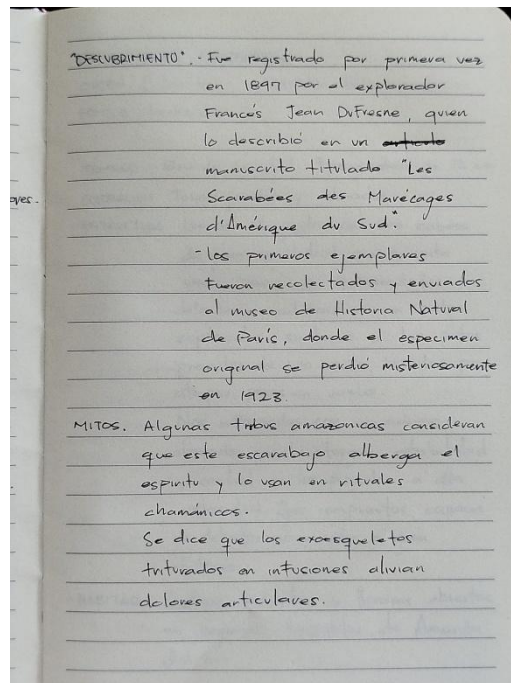 "DESCUBRIMIENTO".- Fue registrado por primera vez
en 1897 por el explorador
Francés Jean DuFresne, quien
lo describió en un articulo
manuscrito titulado "Les
Scarabées des Marécages
d'Amérique du Sud".
- los primeros ejemplares
fueron recolectados y enviados
al museo de Historia Natural
de París, donde el especimen
original se perdió misteriosamente
en 1923.
MITOS. Algunas tribus amazonicas consideran
que este escarabajo alberga el
espiritu y lo usan en rituales
chamánicos.
Se dice que los exoesqueletos
triturados en infusiones alivian
dolores articulares.